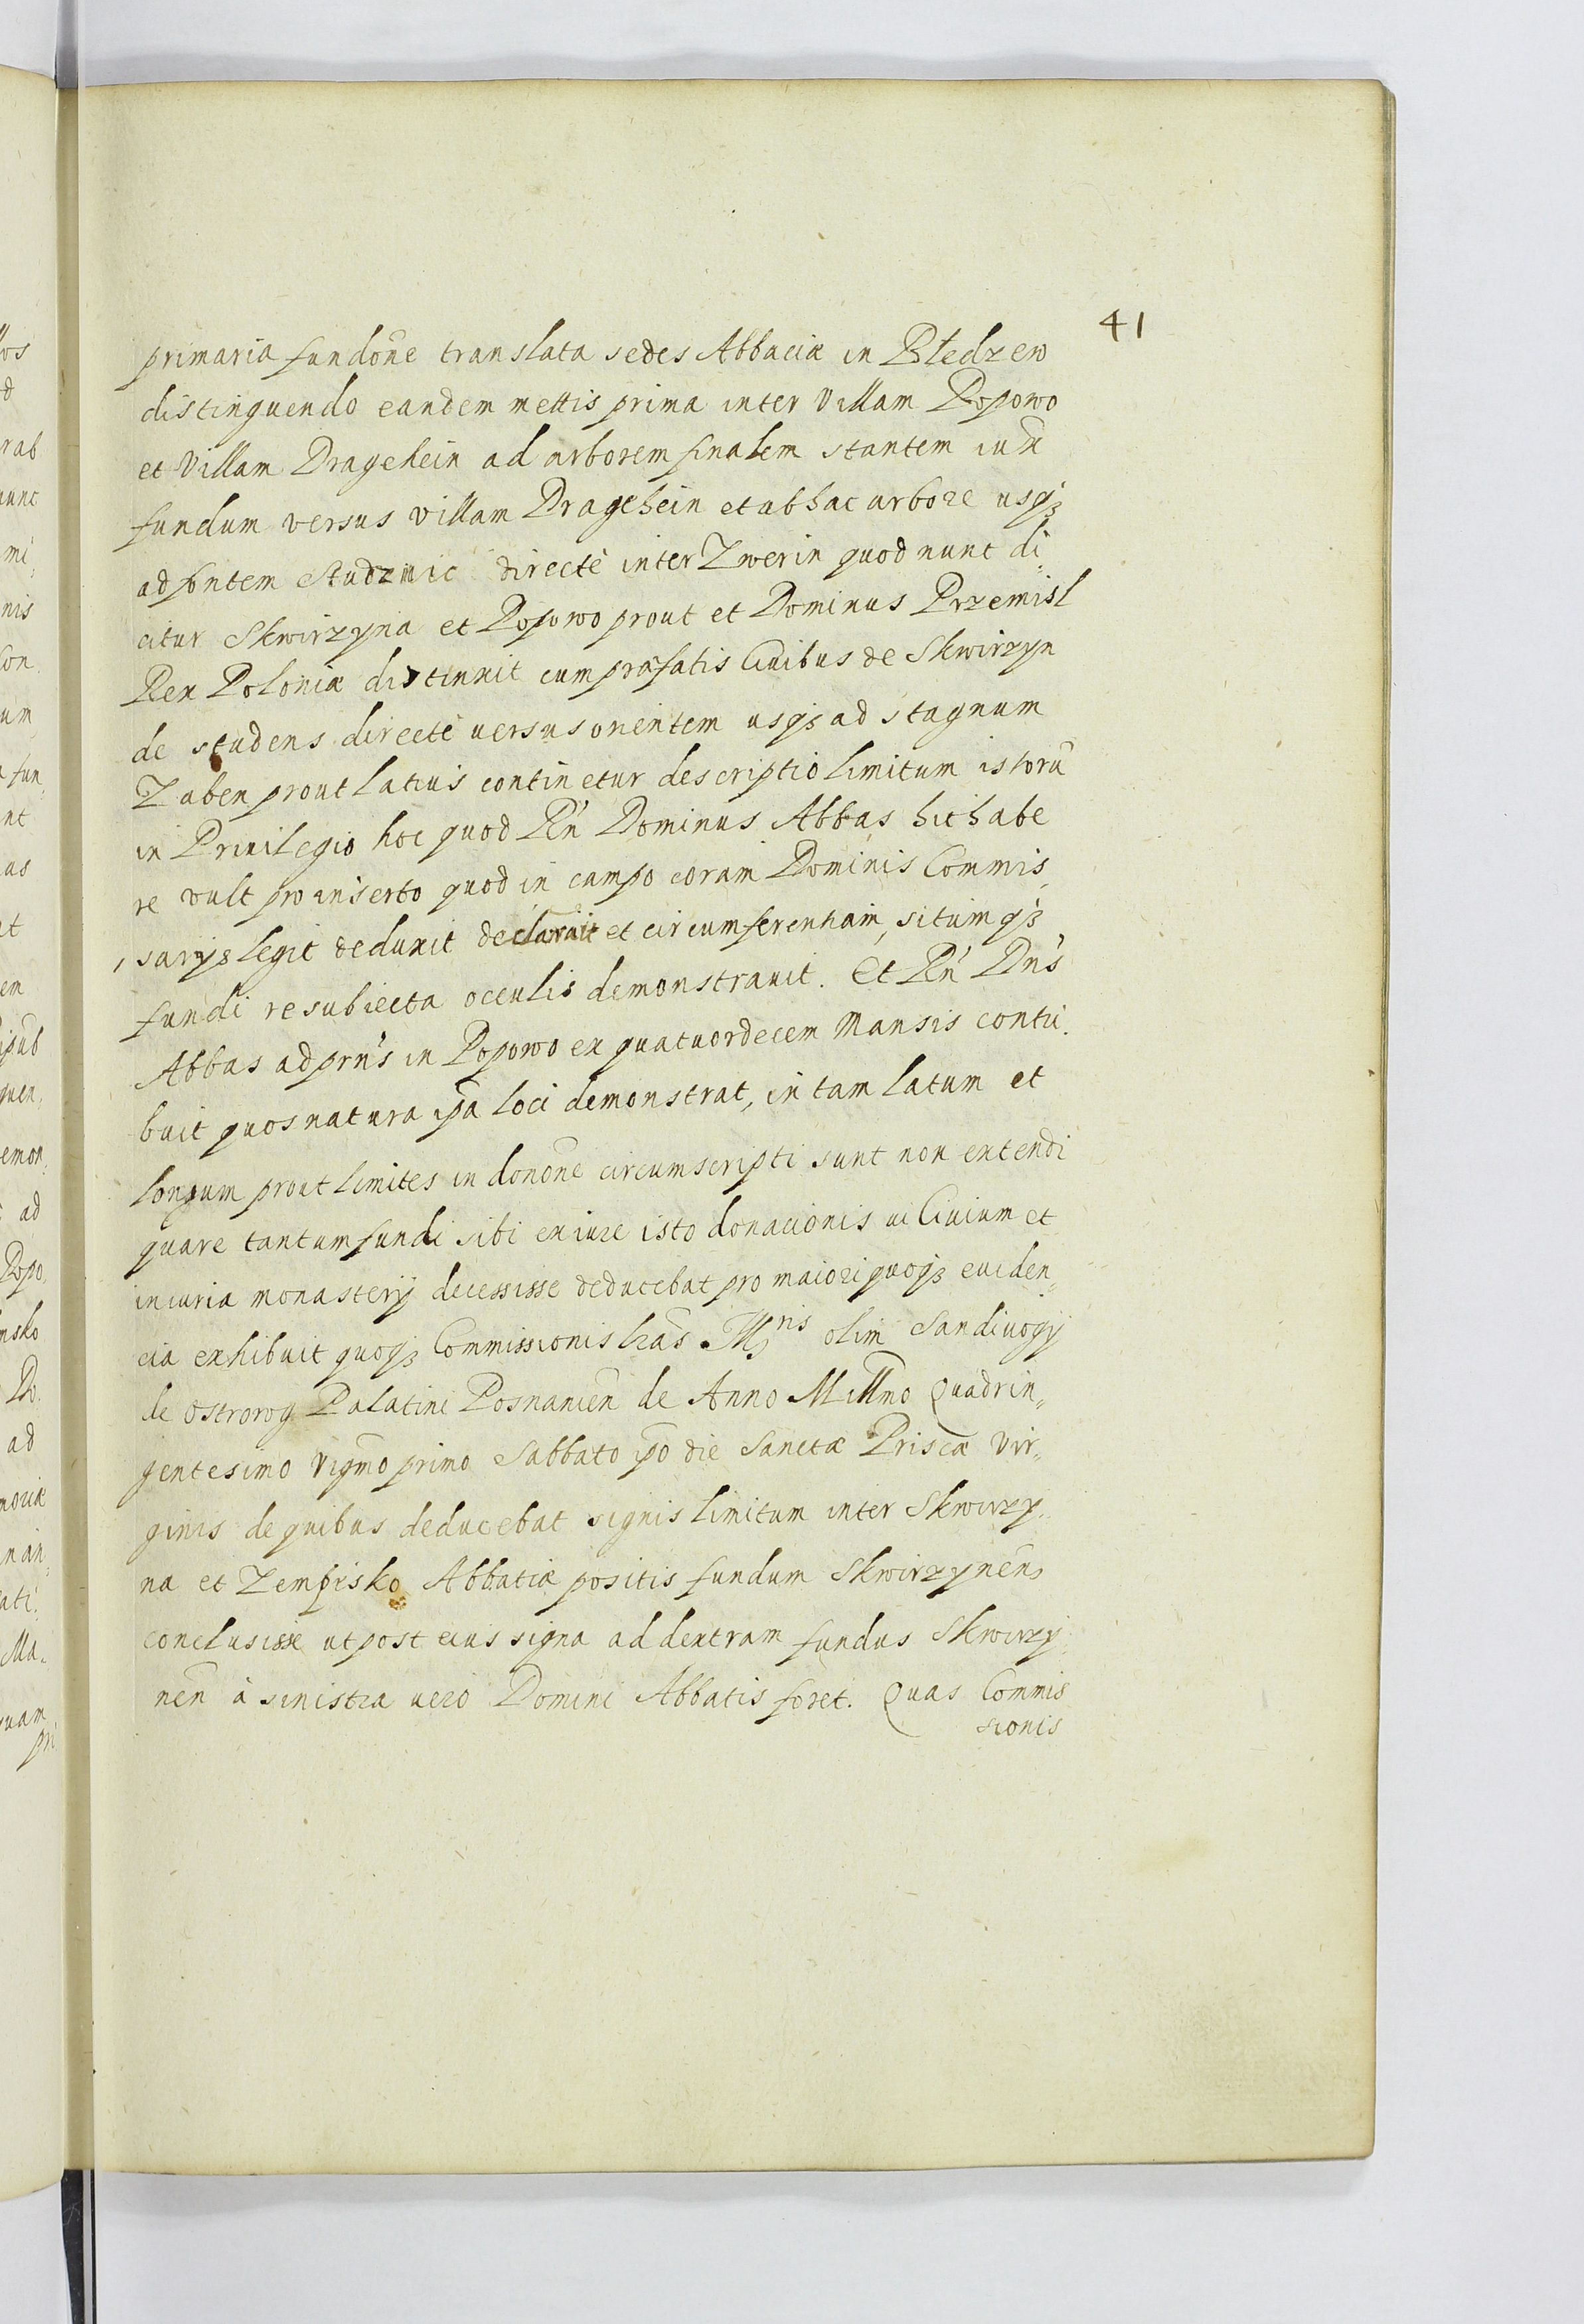 41
primaria fundoñe translata sedes Abbaciæ in Bledzew
distinguendo eandem mettis prima inter Villam Popowo
et Villam Dragehein ad arborem finalem stantem iux̃
fundum versus villam Dragehein et ab hac arbore usqꝫ
ad fontem Studznic directè inter Zwerin quod nunc di„
citur Skwirzyna et Popowo prout et Dominus Przemisl
Rex Poloniæ distinxit cum præfatis Ciuibus de Skwirzyn
de studens directè uersus orientem usqꝫ ad stagnum
Zaben prout latius continetur descriptio limitum istorũ
in Priuilegio hoc quod Pñ Dominus Abbas hic habe
re vult pro inserto quod in campo coram Dominis Commis„
sarijs legit deduxit declarauit et circumferentiam, situmqꝫ
fundi re subiecta occulis demonstrauit. Et Pñ Dñs
Abbas ad prñs in Popowo ex quatuordecem Mansis contri„
buit quos natura ipã loci demonstrat, in tam latum et
longum prout limites in donoñe circumscripti sunt non extendi
quare tantum fundi sibi ex iure isto donacionis ui Ciuium et
iniuria monasterij decessisse deducebat pro maiori quoqꝫ euiden„
cia exhibuit quoqꝫ Commissionis lr̃as Mgris olim Sandiuogij
de Ostrorog Palatini Posnanieñ de Anno Millm̃o Quadrin„
gentesimo Vigm̃o primo Sabbato ipõ die Sanctæ Priscæ Vir„
ginis de quibus deducebat signis limitum inter Skwirzy„
na et Zempisko Abbatiæ positis fundum Skwirzyneñ
conclusisse ut post eius signa ad dextram fundus Skwirzy„
neñ à sinistra uero Domini Abbatis foret. Quas Commis
sionis